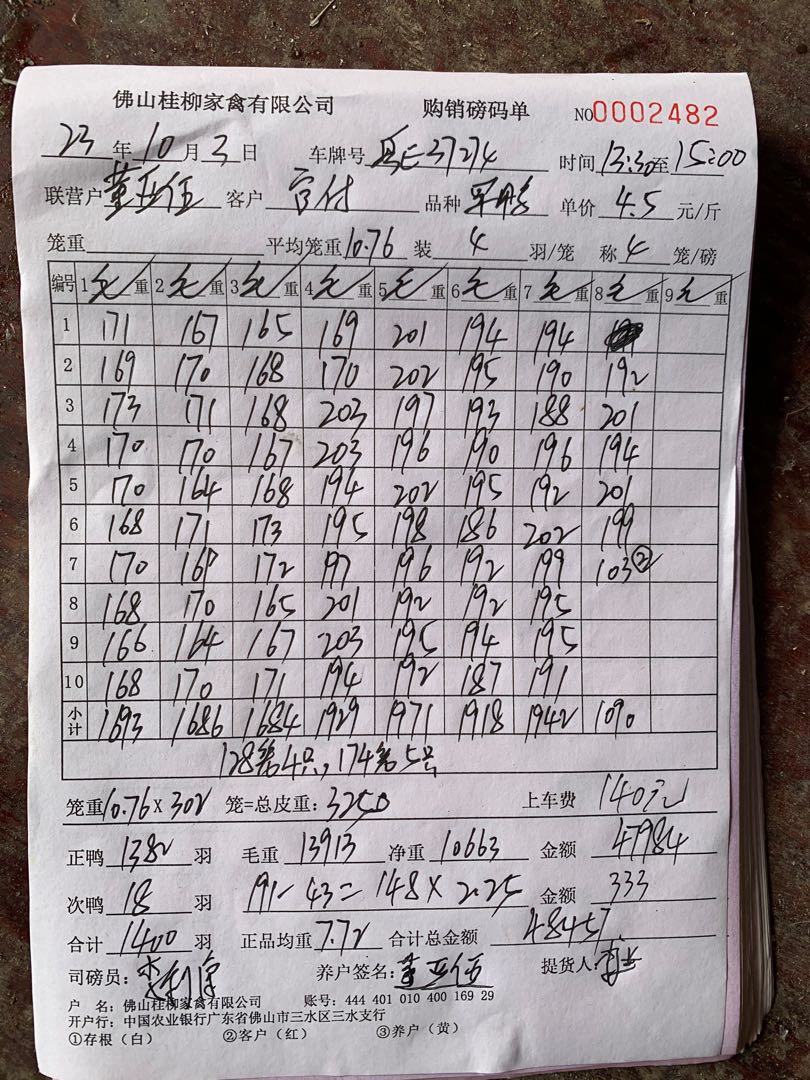 佛山桂柳家禽有限公司 购销磅码单 NO0002482
23年10月3日 车牌号 37274 时间13:30至15:00
联营户董亚伍 客户 官付 品种 单价 4.5 元/斤
笼重 平均笼重10.76 装 4 羽/笼 称 4 笼/磅
编号 1毛重 2毛重 3毛重 4毛重 5毛重 6毛重 7毛重 8毛重 9毛重
1 171 167 165 169 201 194 194
2 169 170 168 170 202 195 190 192
3 173 171 168 203 197 193 188 201
4 170 170 167 203 196 190 196 194
5 170 164 168 194 202 195 192 201
6 168 171 173 195 198 186 202 199
7 170 169 172 197 196 192 199 103②
8 168 170 165 201 192 192 195
9 166 164 167 203 195 194 195
10 168 170 171 194 192 187 191
小计 1693 1686 1684 1929 1971 1918 1942 1090
128笼4只, 174笼5只
笼重10.76×302 笼=总皮重: 3250 上车费 140元
正鸭 1382 羽 毛重 13913 净重 10663 金额 47984
次鸭 18 羽 191-43=148×2.25 金额 333
合计 1400 羽 正品均重 7.72 合计总金额 48457
司磅员: 养户签名: 董亚伍 提货人:
户 名: 佛山桂柳家禽有限公司 账号: 444 401 010 400 169 29
开户行: 中国农业银行广东省佛山市三水区三水支行
①存根(白) ②客户(红) ③养户(黄)